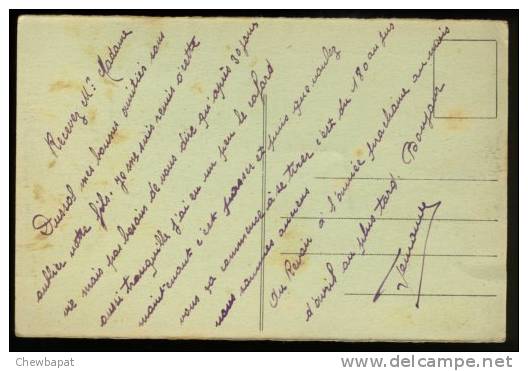 Recevez Mr Madame
Dussol mes bonnes amitiés sans
oublier votre fils. Je me suis remis à cette
vie mais pas besoin de vous dire qu'après 30 jours
aussi tranquille j'ai eu un peu le cafard
maintenant c'est passer et puis que voulez
vous ça commence à se tirer c'est du 180 au jus
nous sommes anciens
Au Revoir à l'année prochaine au mois
d'avril au plus tard. Bonjour
Chewbapat
www.delcampe.net